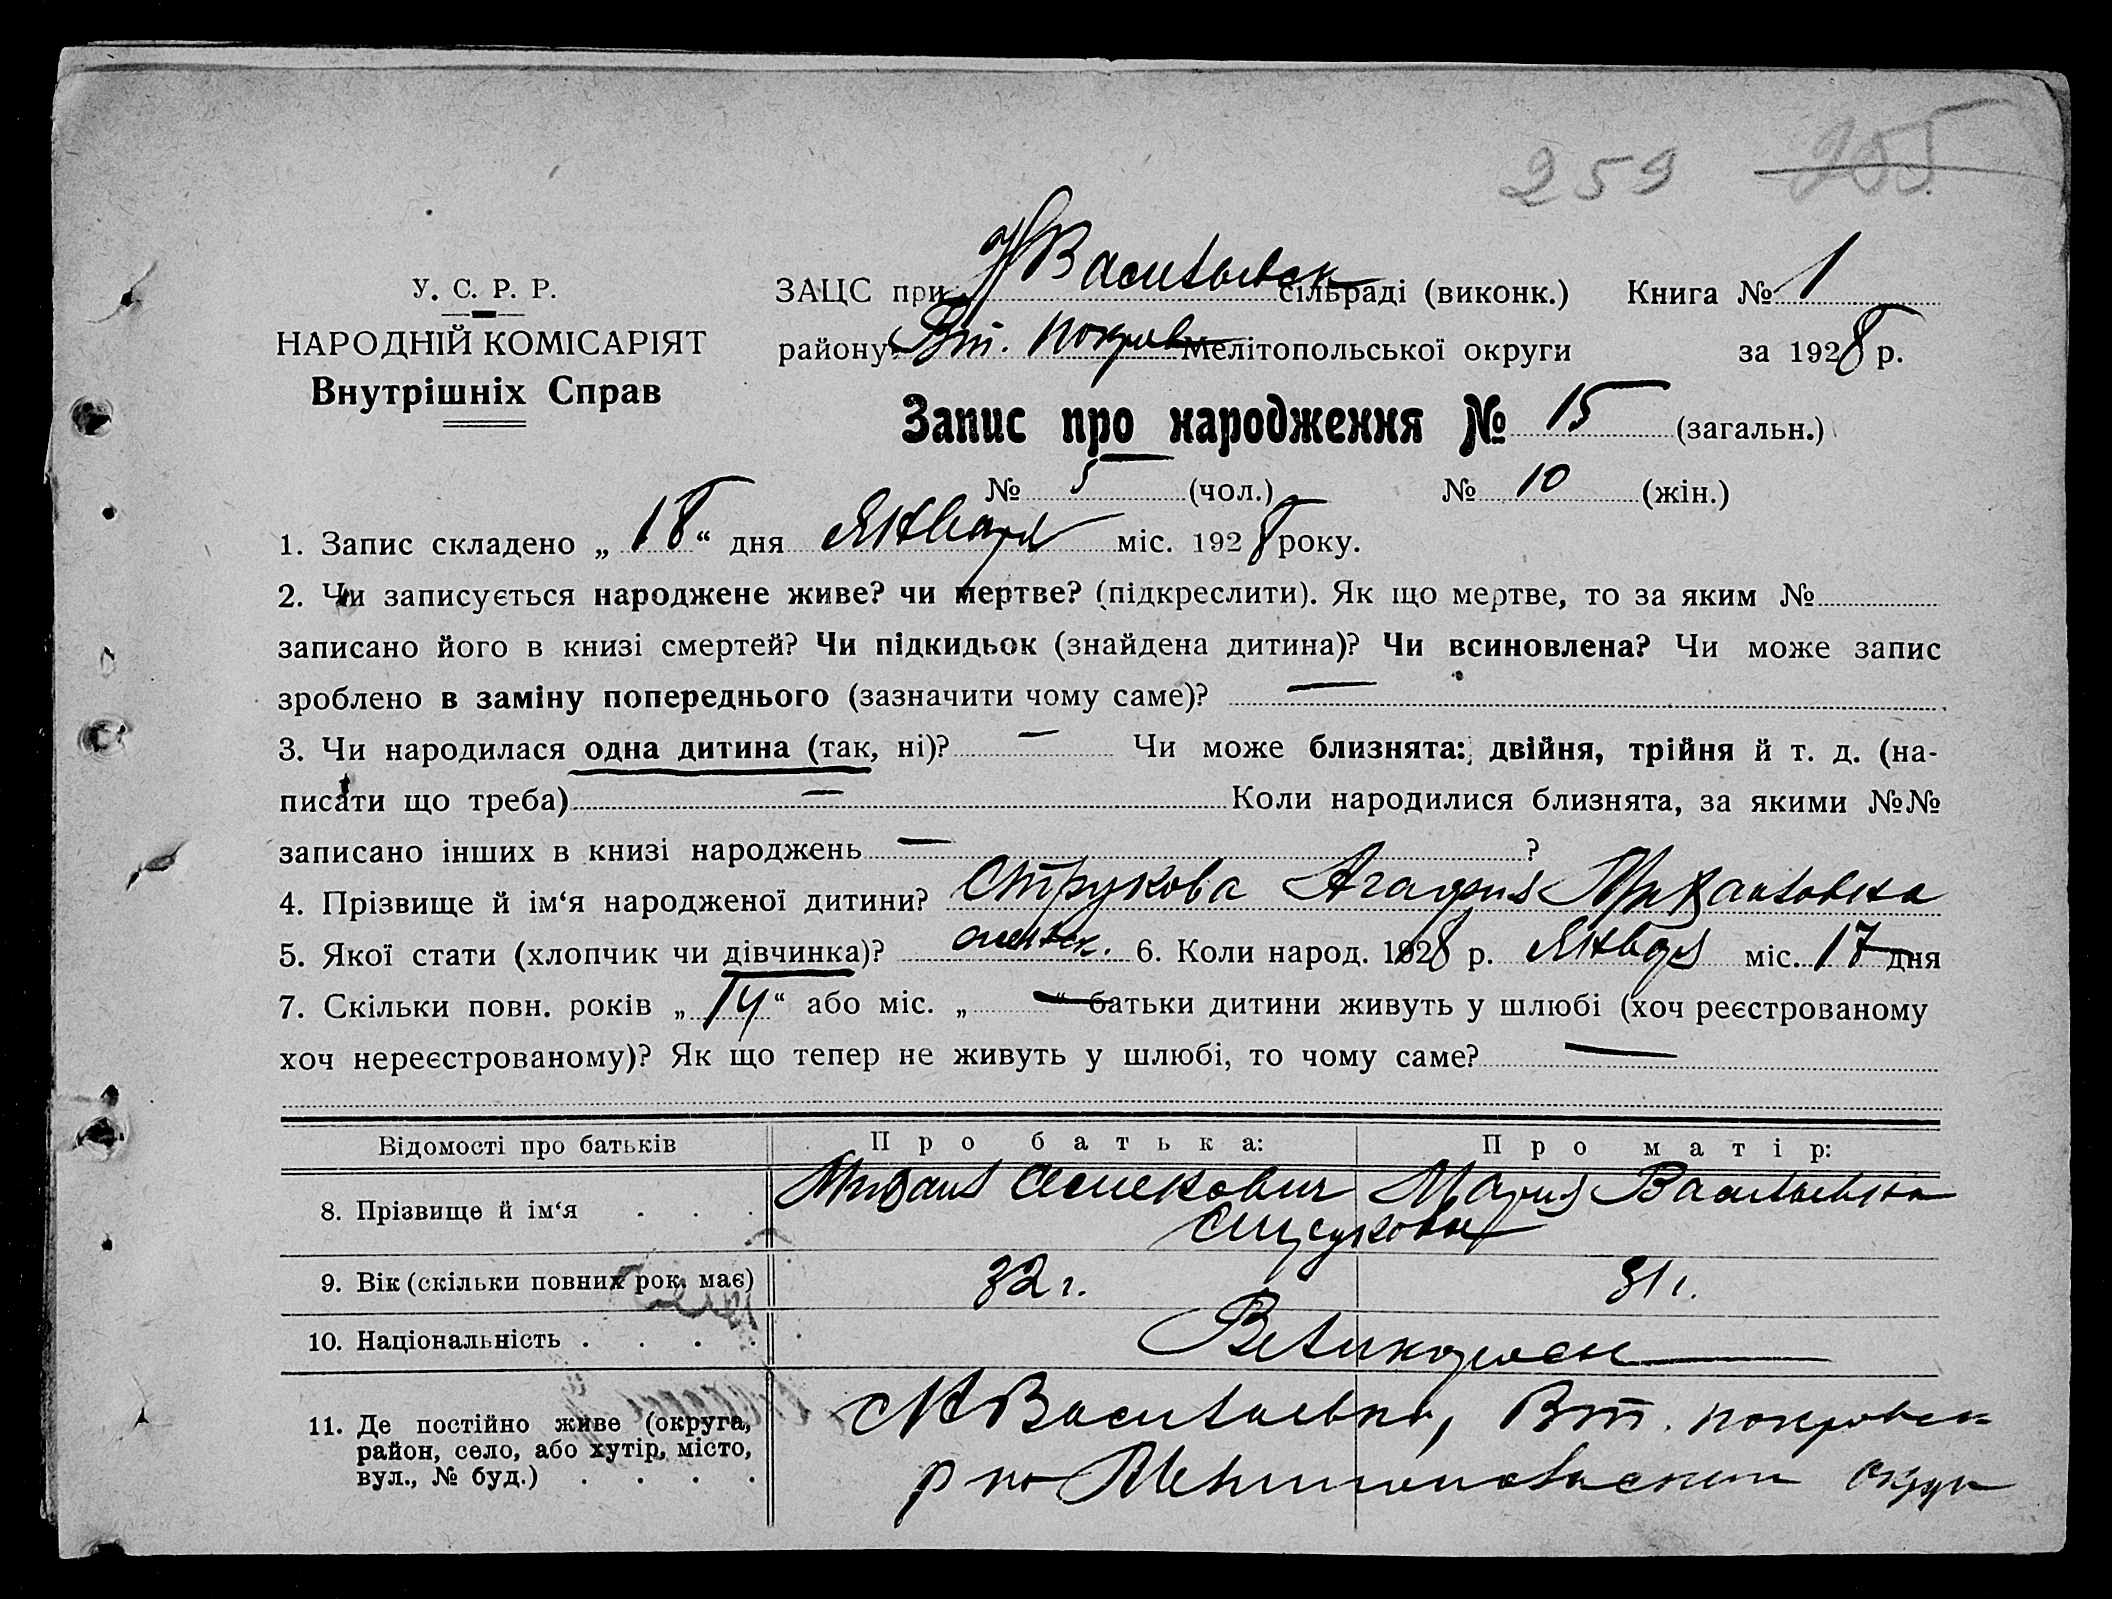 259 205
У. С. Р. Р.
НАРОДНІЙ КОМІСАРІЯТ
Внутрішніх Справ
ЗАЦС при Н Васильевск сільраді (виконк.) Книга № 1
району Вт. Покров Мелітопольської округи за 1928 р.
Запис про народження № 15 (загальн.)
№ 5 (чол.) № 10 (жін.)
1. Запис складено „ 18 “ дня Января міс. 1928 року.
2. Чи записується народжене живе? чи мертве? (підкреслити). Як що мертве, то за яким №
записано його в книзі смертей? Чи підкидьок (знайдена дитина)? Чи всиновлена? Чи може запис
зроблено в заміну попереднього (зазначити чому саме)? —
3. Чи народилася одна дитина (так, ні)? — Чи може близнята: двійня, трійня й т. д. (на-
писати що треба) — Коли народилися близнята, за якими №№
записано інших в книзі народжень — ?
4. Прізвище й ім‘я народженої дитини? Струкова Агафия Михайловна
5. Якої стати (хлопчик чи дівчинка)? женск. 6. Коли народ. 1928 р. Января міс. 17 дня
7. Скільки повн. років „ “ або міс. „ — “ батьки дитини живуть у шлюбі (хоч реєстрованому
хоч нереєстрованому)? Як що тепер не живуть у шлюбі, то чому саме? —
Відомості про батьків Про батька: Про матір:
8. Прізвище й ім‘я . . . Михаил Семенович Мария Васильевна
Струковы
9. Вік (скільки повних рок. має) 32 г. 31 г.
10. Національність . . . . Великоросы
11. Де постійно живе (округа, Н Васильевка, Вт. Покровск
район, село, або хутір, місто, р но Мелитопольский округ
вул., № буд.) . . . .